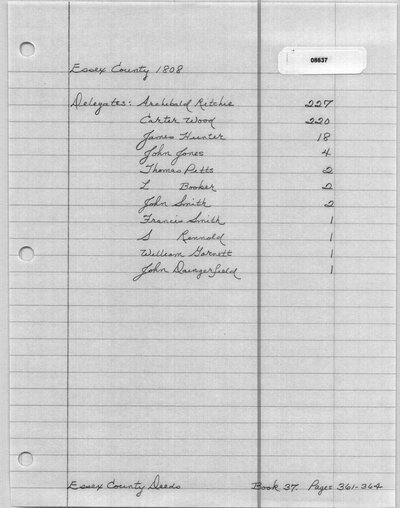 08637
Essex County 1808
Delegates: Archibald Ritchie 227
Carter Wood 220
James Hunter 18
John Jones 4
Thomas Pitts 2
L Booker 2
John Smith 2
Francis Smith 1
S Rennold 1
William Garnett 1
John Daingerfield 1
Essex County Deeds Book 37. Pages 361-364